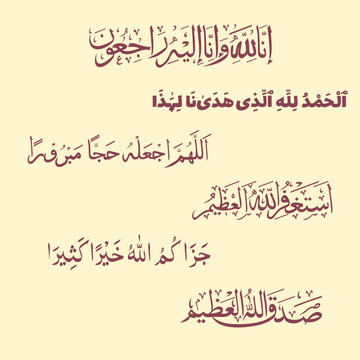 إنا لله وإنا إليه راجعون
ٱلْحَمْدُ لِلَّهِ ٱلَّذِى هَدَىٰنَا لِهَٰذَا
اَللَّهُمَّ اجْعَلْهُ حَجًّا مَبْرُوْرًا
أستغفر الله العظيم
جَزَاكُمُ اللهُ خَيْرًا كَثِيْرًا
صدق الله العظيم